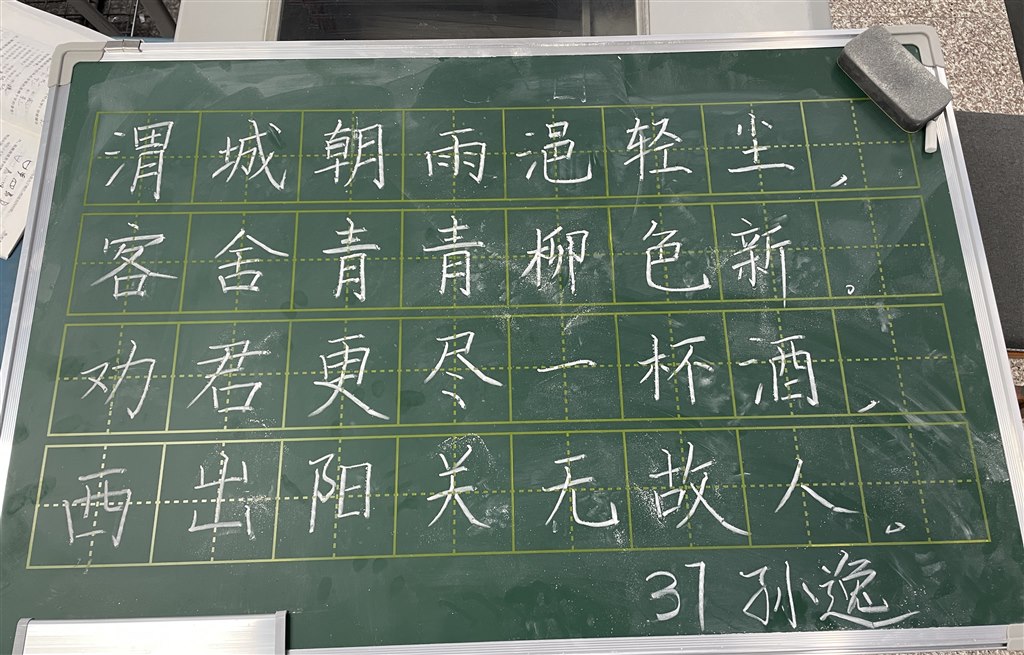 渭城朝雨浥轻尘，
客舍青青柳色新。
劝君更尽一杯酒，
西出阳关无故人。
37 孙逸